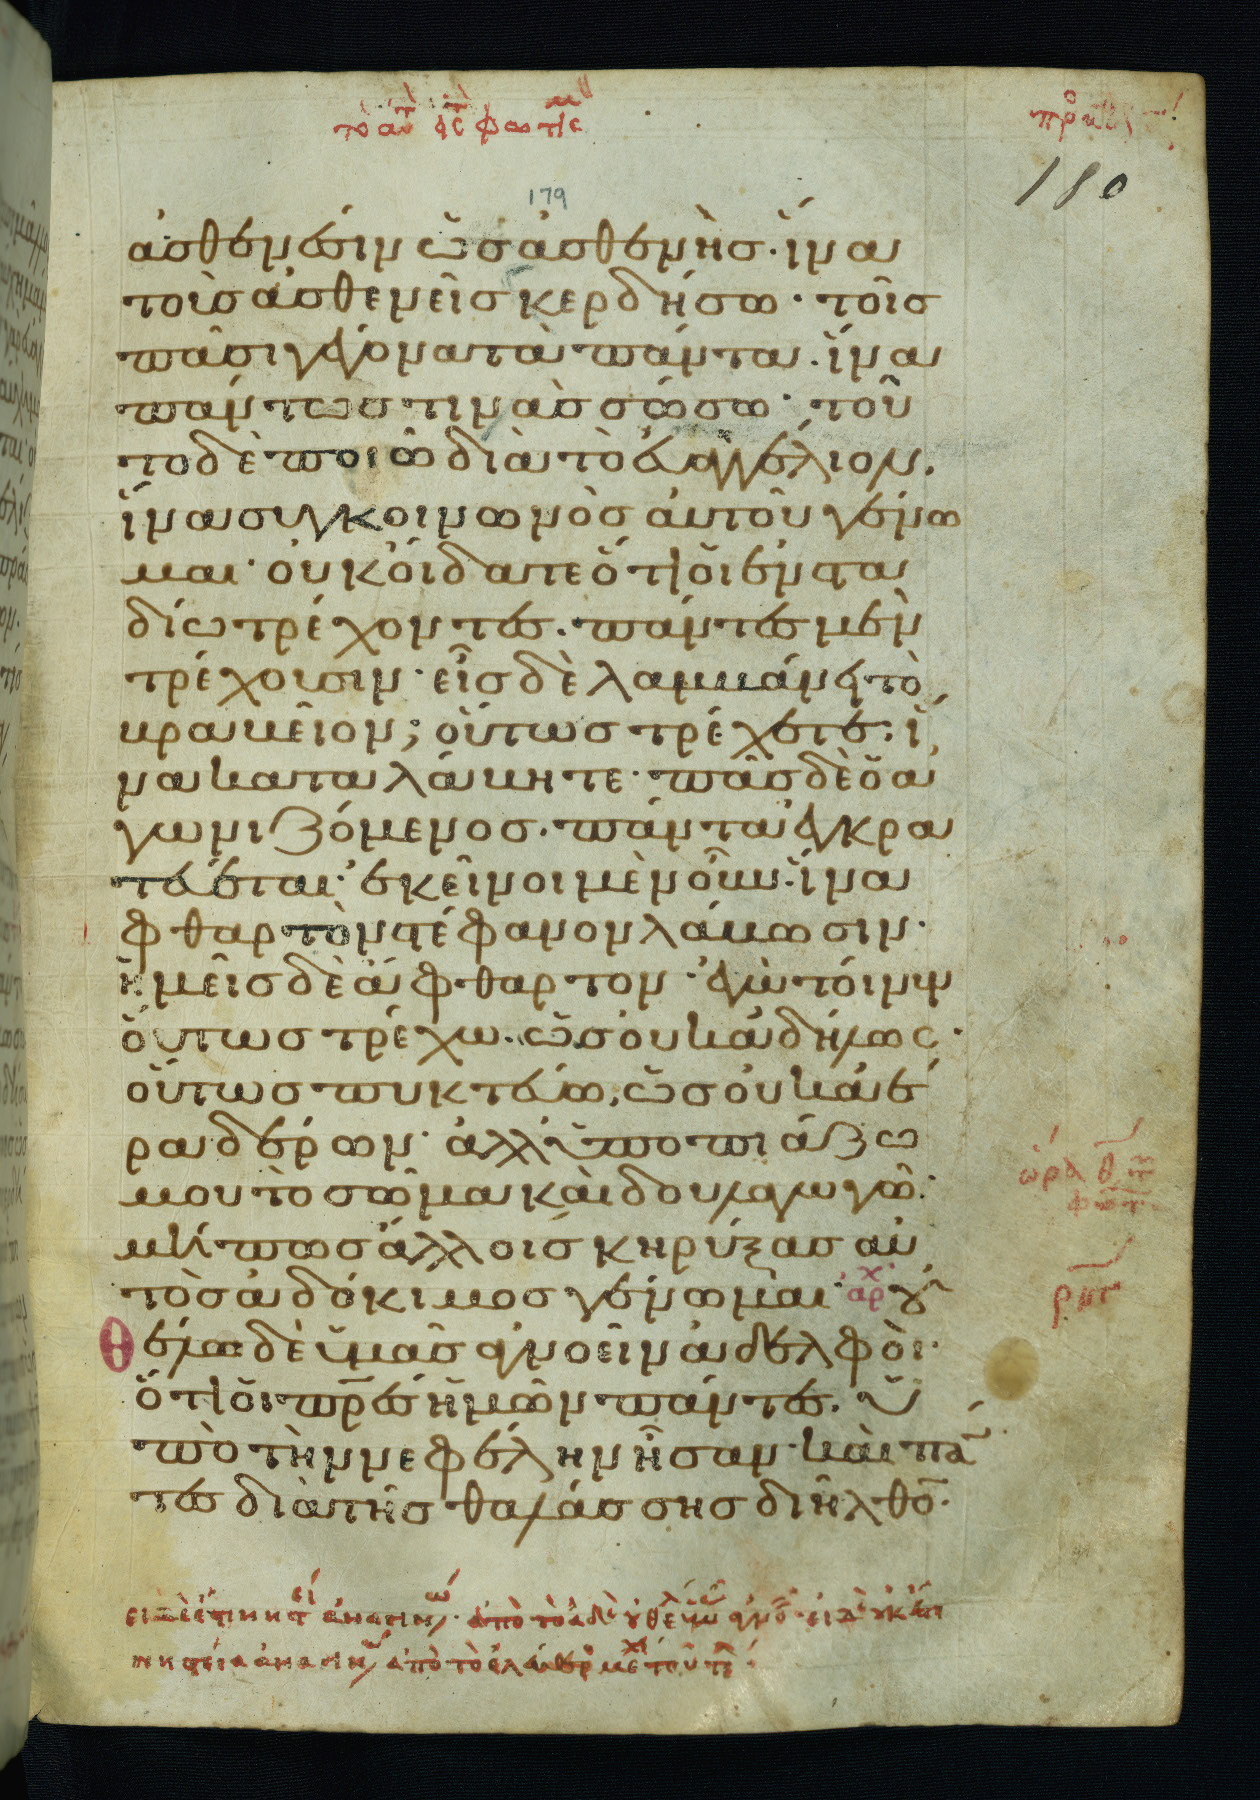 179
180
ἀσθενέσιν ὡς ἀσθενὴς· ἵνα
τοὺς ἀσθενεῖς κερδήσω· τοῖς
πᾶσι γέγονα τὰ πάντα· ἵνα
πάντως τινὰς σώσω· τοῦ
το δὲ ποιῶ διὰ τὸ εὐαγγέλιον.
ἵνα συγκοινωνὸς αὐτοῦ γένω
μαι· οὐκ οἴδατε ὅτι οἱ ἐν στα
δίω τρέχοντες. πάντες μὲν
τρέχουσιν· εἷς δὲ λαμβάνει τὸ
βραβεῖον; οὕτως τρέχετε· ἵ
να καταλάβητε· πᾶς δὲ ὁ ἀ
γωνιζόμενος. πάντα ἐγκρα
τεύεται· ἐκεῖνοι μὲν οὖν· ἵνα
φθαρτὸν στέφανον λάβωσιν·
ἡμεῖς δὲ ἄφθαρτον· ἐγὼ τοίνυν
οὕτως τρέχω. ὡς οὐκ ἀδήλως·
οὕτως πυκτεύω, ὡς οὐκ ἀέ
ρα δέρων· ἀλλ' ὑποπιάζω
μου τὸ σῶμα καὶ δουλαγωγῶ·
μή πως ἄλλοις κηρύξας αὐ
τὸς ἀδόκιμος γένωμαι· ἀρχ
θέλω δὲ ὑμᾶς ἀγνοεῖν ἀδελφοὶ·
ὅτι οἱ πρ̅ες ἡμῶν πάντες. ὑ
πὸ τὴν νεφέλην ἦσαν· καὶ πα
τες διὰ τῆς θαλάσσης διῆλθο̅·